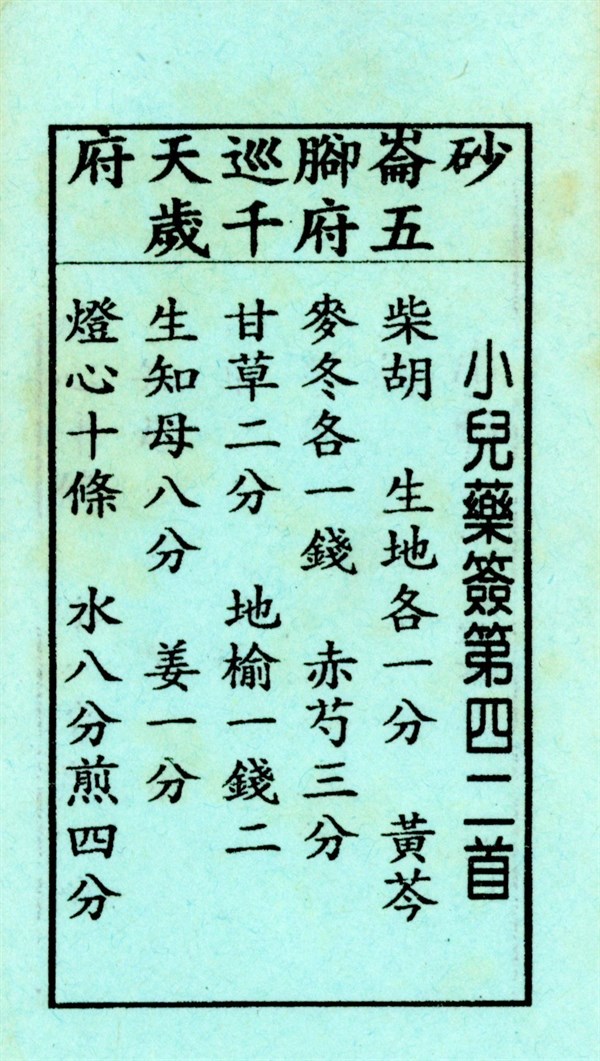 砂崙腳巡天府
五府千歲
小兒藥簽第四二首
柴胡 生地各一分 黃芩
麥冬各一錢 赤芍三分
甘草二分 地榆一錢二
生知母八分 姜一分
燈心十條 水八分煎四分